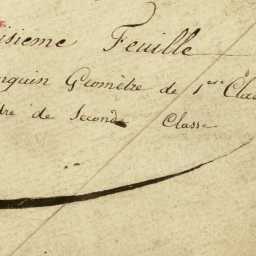 isieme Feuille
nguin Géomètre de 1ere Clas
dre de Seconde Classe